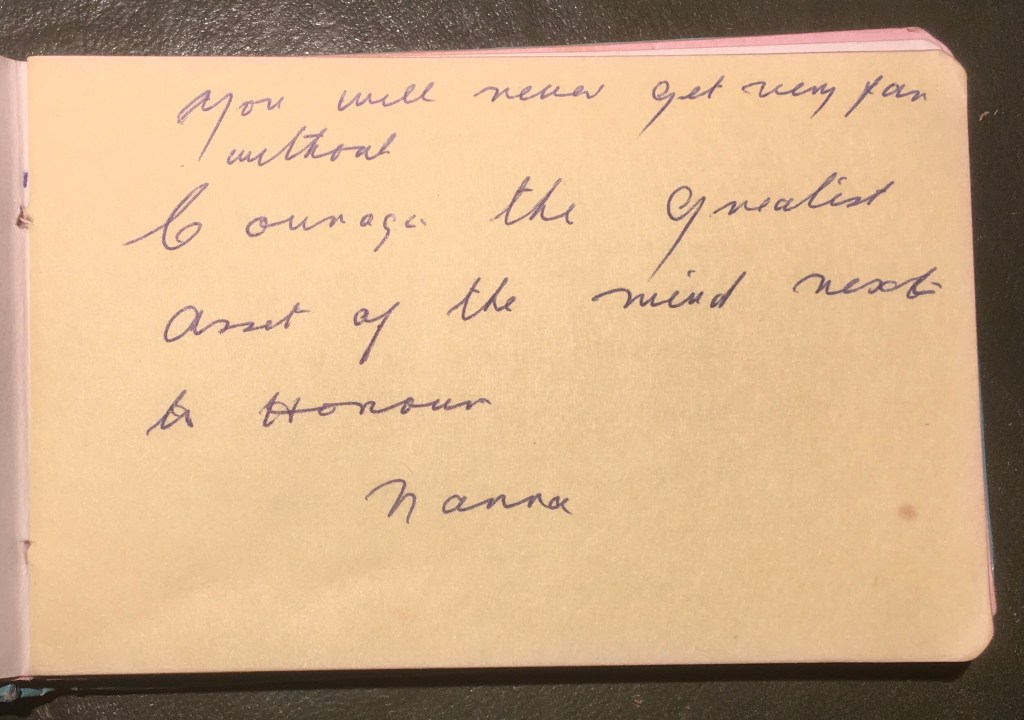 You will never get very far
without
Courage the Greatist
Asset of the mind next
to Honour
Nanna